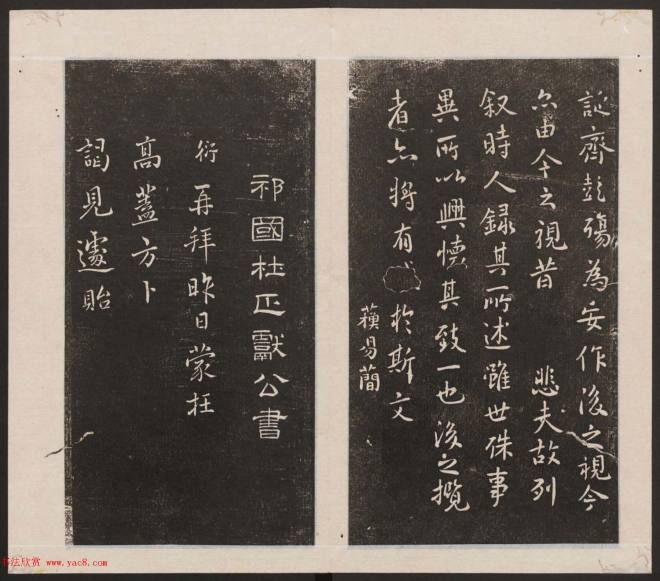 誕齊彭殤為妄作後之視今
亦由今之視昔 悲夫故列
叙時人録其所述雖世殊事
異所以興懐其致一也後之攬
者亦將有 於斯文
蘇易簡
祁國杜正獻公書
衍再拜昨日蒙枉
高蓋方卜
謁見遽貽
书法欣赏 www.yac8.com